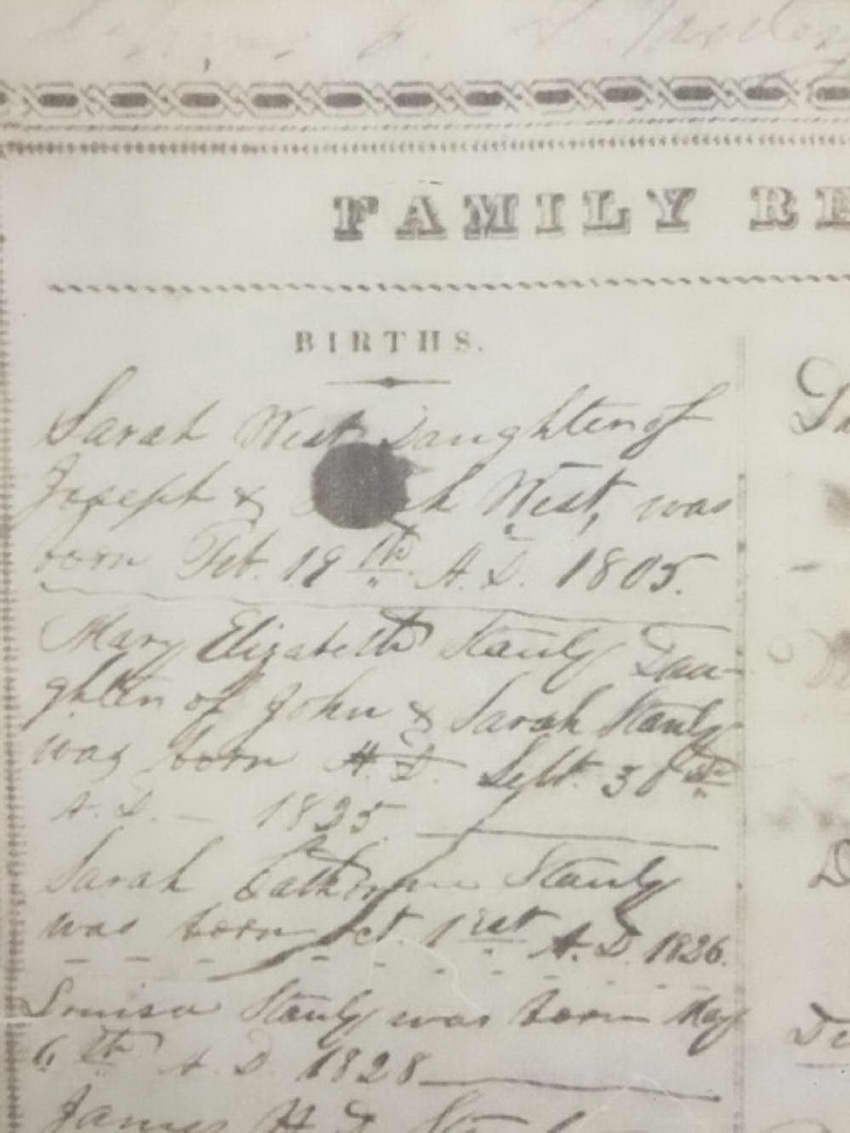 FAMILY RE
BIRTHS.
Sarah West Daughter of
Joseph & h West, was
born Feb. 19th A.D. 1805.
Mary Elizabeth Stanly Dau-
ghter of John & Sarah Stanly
was born A.D. Sept. 30th
A.D. — 1825.
Sarah Catherine Stanly
was born Oct. 1rst A.D. 1826.
Louisa Stanly was born May
6th A.D. 1828
James H.